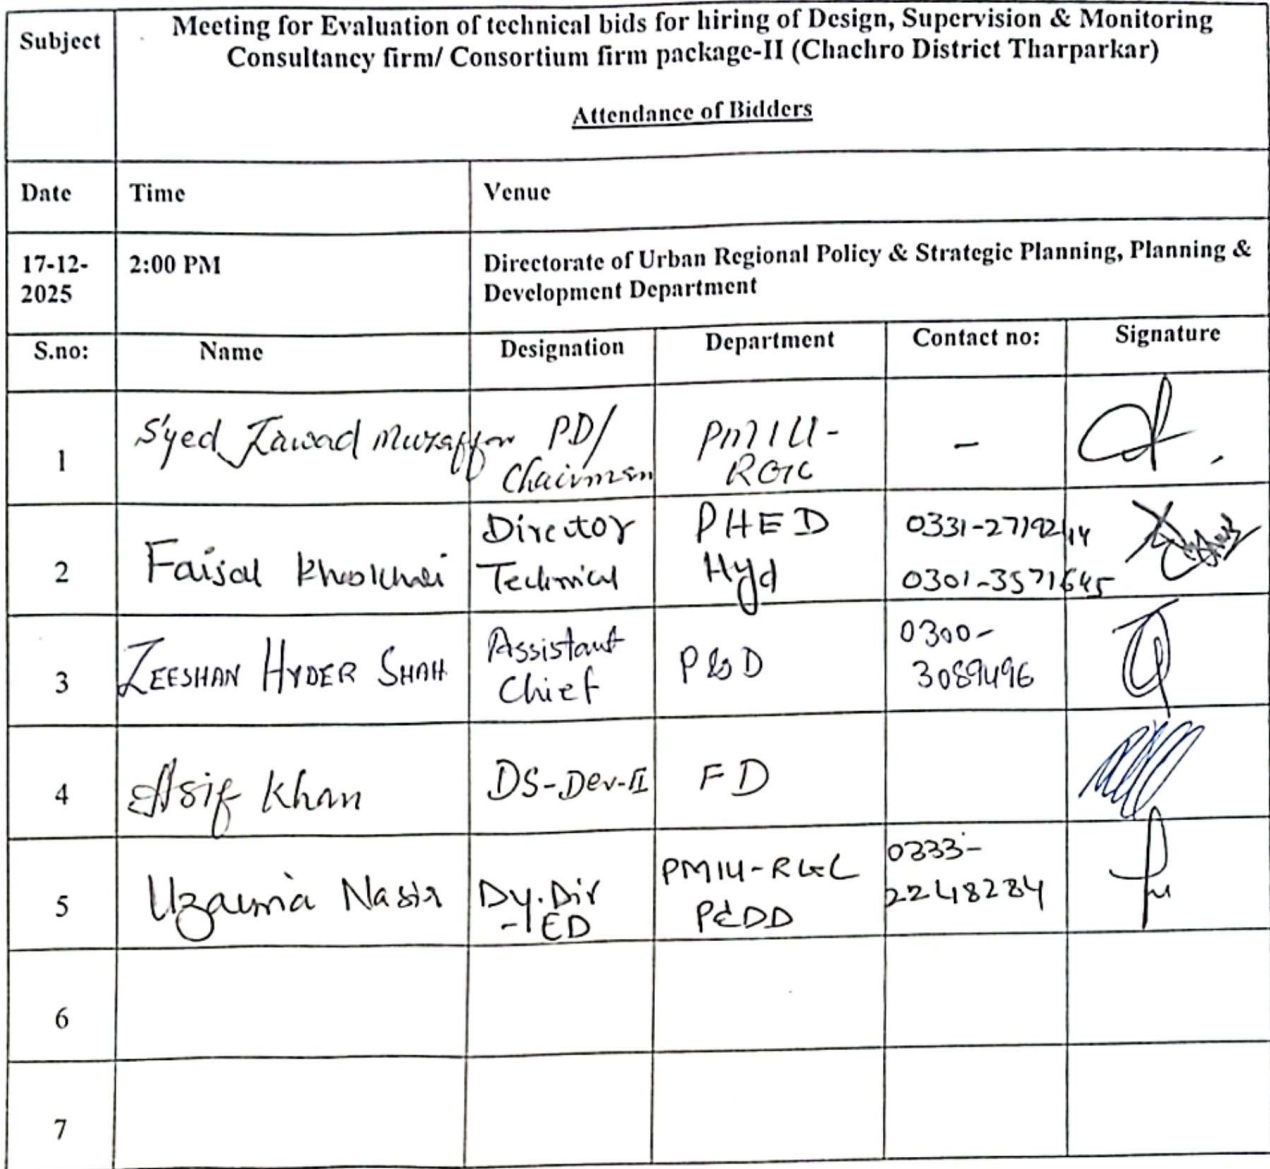 Subject
Meeting for Evaluation of technical bids for hiring of Design, Supervision & Monitoring
Consultancy firm/ Consortium firm package-II (Chachro District Tharparkar)
Attendance of Bidders
Date Time Venue
17-12-
2025
2:00 PM
Directorate of Urban Regional Policy & Strategic Planning, Planning &
Development Department
S.no: Name Designation Department Contact no: Signature
1 Syed Jawad Muzaffar PD/
Chairman
-
2 Faisal
Director
Technical
PHED
Hyd
0301-3571645
3 ZEESHAN HYDER SHAH
Assistant
Chief
P&D
0300-
3089496
4 Asif Khan DS-Dev-II FD
5 Uzauma Nasir
Dy.Dir
-IED
PMIU-RGC
P&DD
0333-
2248284
6
7